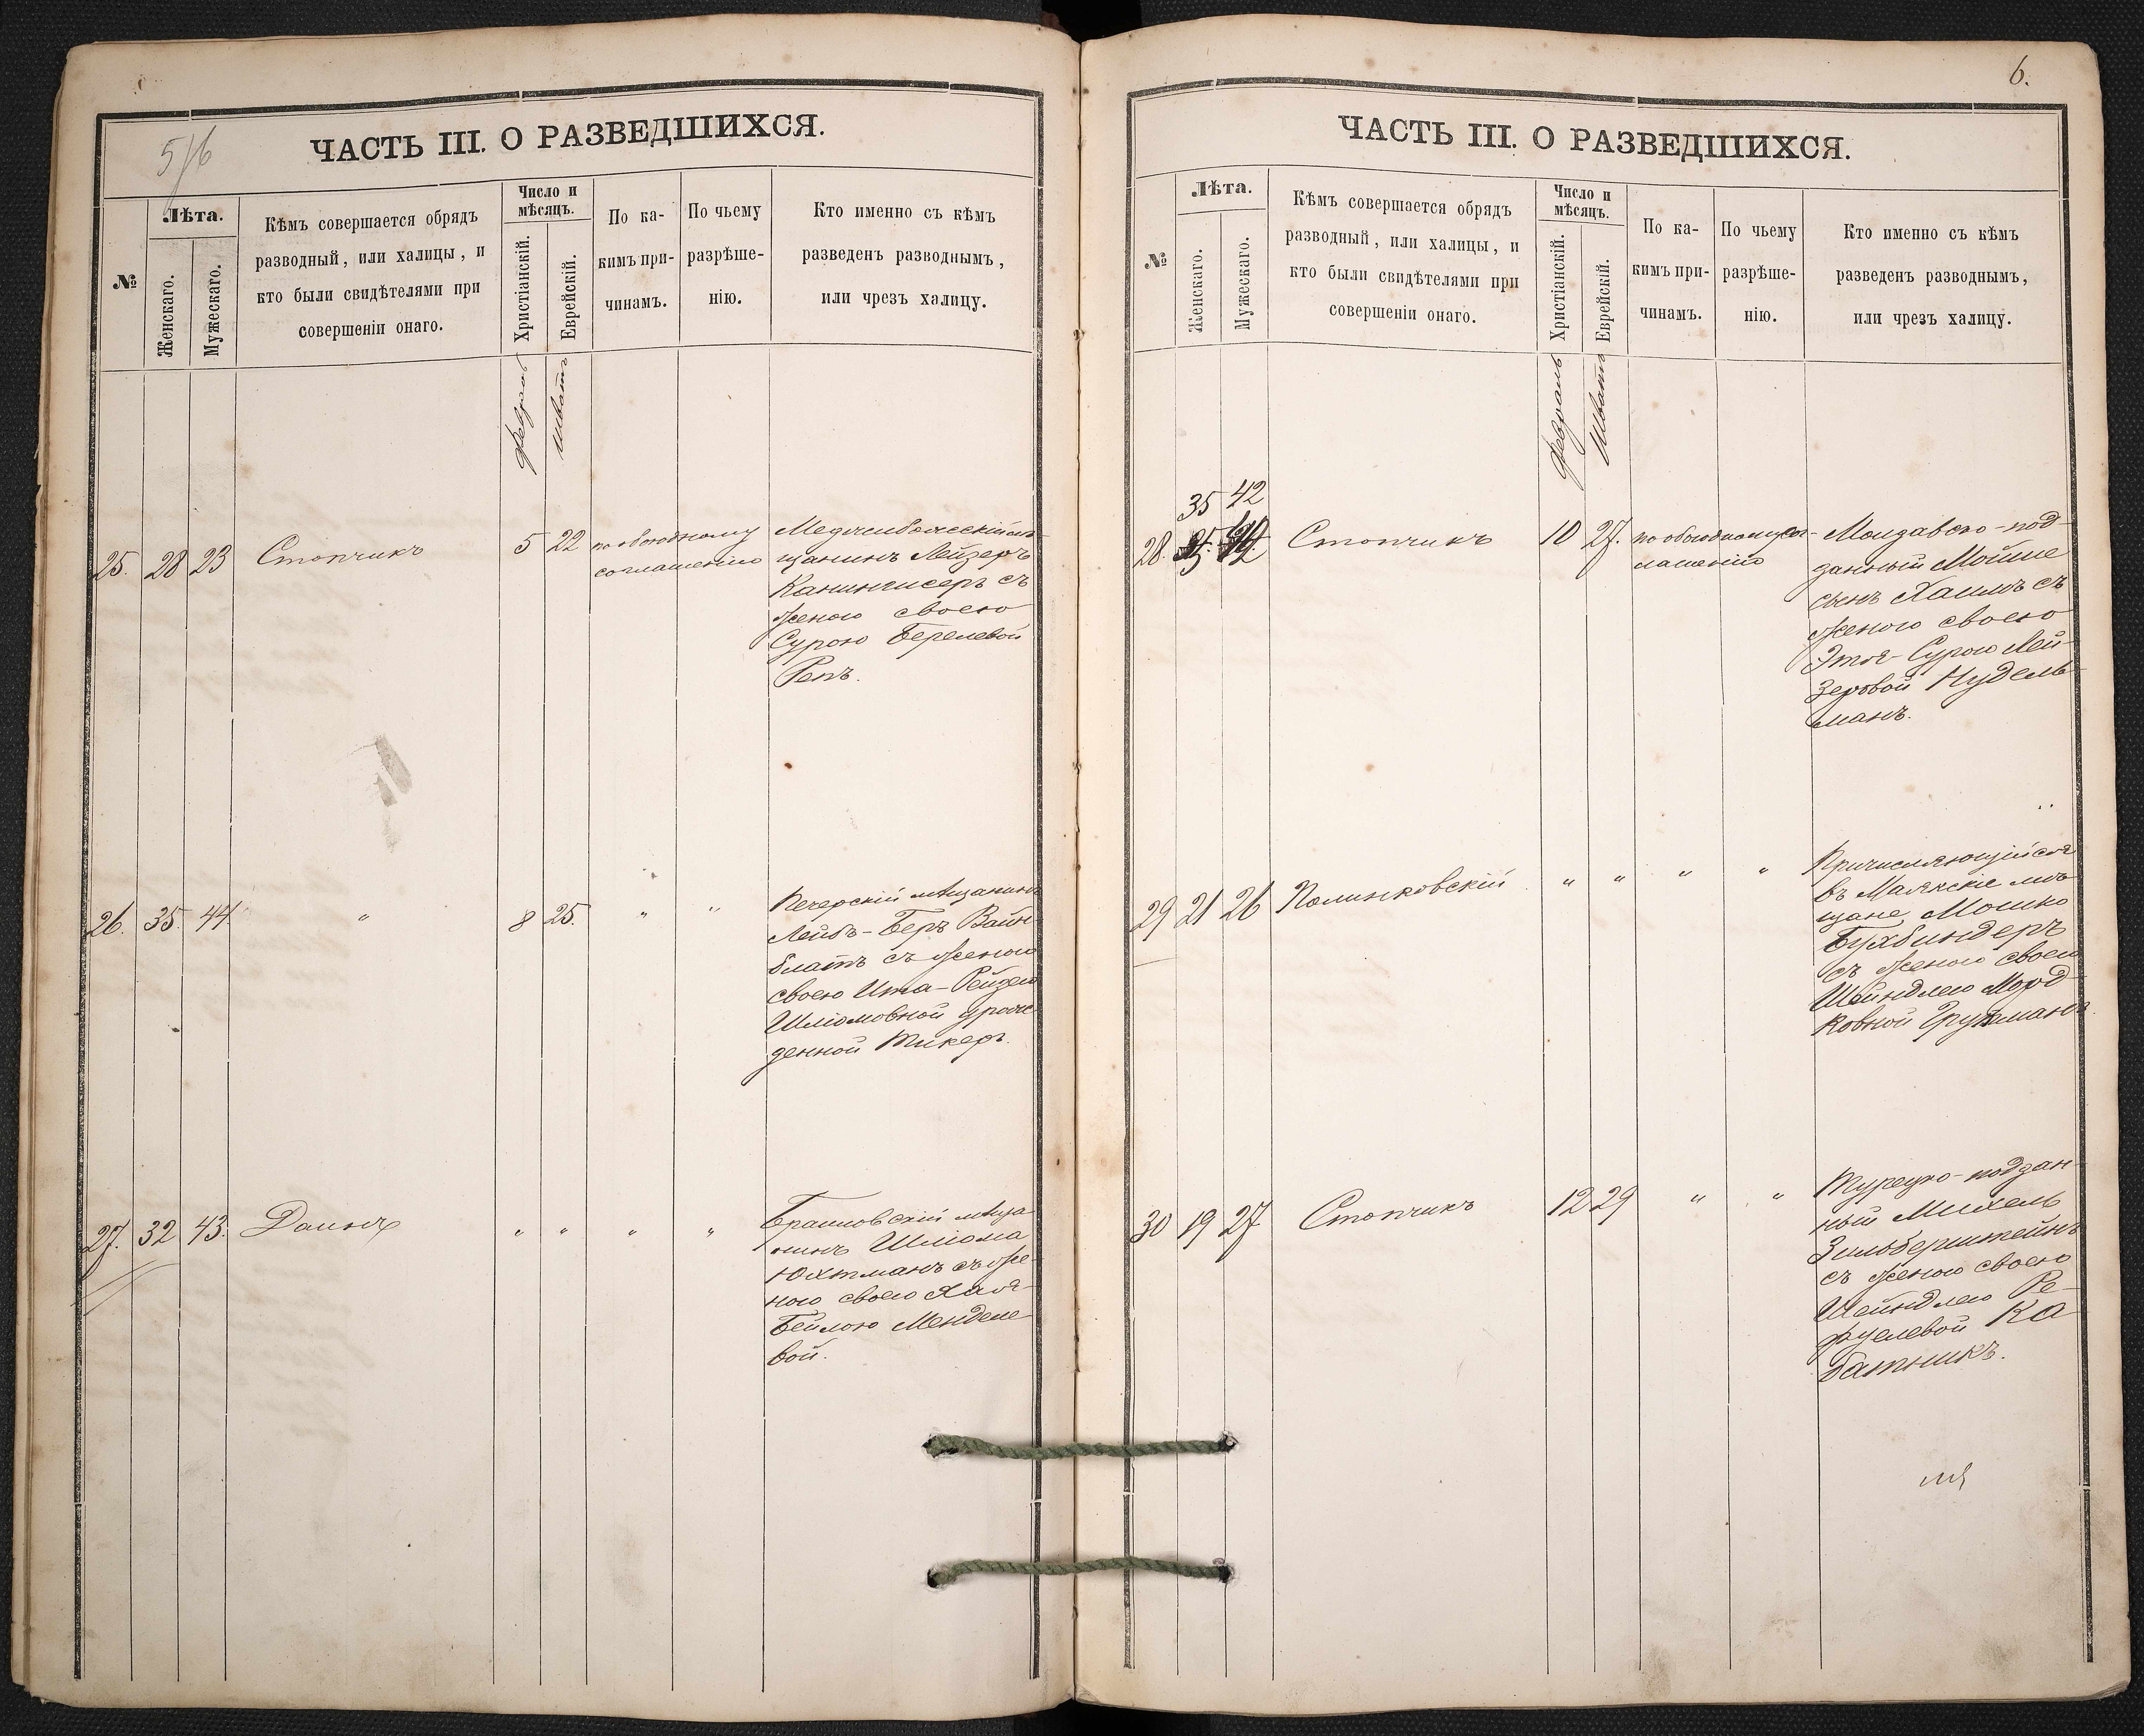 5/6
ЧАСТЬ III. О РАЗВЕДШИХСЯ.
№
Лѣта.
Женскаго.
Мужескаго.
Кѣмъ совершается обрядъ
разводный, или халицы, и
кто были свидѣтелями при
совершеніи онаго.
Число и
мѣсяцъ.
Христіанскій.
Еврейскій.
По ка-
кимъ при-
чинамъ.
По чьему
разрѣше-
нію.
Кто именно съ кѣмъ
разведенъ разводнымъ,
или чрезъ халицу.
Шватъ
25. 28 23 Стопчикъ 5 22 по обоюдному
соглашенію
щанинъ Лейзеръ
съ
женою своею
Сурою Берелевой
Репъ.
26. 35. 44. " 8 25. " "
Печерскій мѣщанинъ
Лейбъ-Беръ Вайн-
блатъ съ женою
своею Ита-Рейзею
Шліомовной урож
денной Тикеръ.
27. 32 43. Даинъ " " " "
Браиловскій мѣща
нинъ Шліома
Юхтманъ съ же-
ною своею Хая-
Бейлою Менделе
вой.
6.
ЧАСТЬ III. О РАЗВЕДШИХСЯ.
№
Лѣта.
Женскаго.
Мужескаго.
Кѣмъ совершается обрядъ
разводный, или халицы, и
кто были свидѣтелями при
совершеніи онаго.
Число и
мѣсяцъ.
Христіанскій.
Еврейскій.
По ка-
кимъ при-
чинамъ.
По чьему
разрѣше-
нію.
Кто именно съ кѣмъ
разведенъ разводнымъ,
или чрезъ халицу.
Февраль
Шватъ
35 42
28. Стопчикъ 10 27. по обоюдному сог-
лашенію
Молдавско-под-
данный Мойше
сынъ Хаимъ съ
женою своею
Этя-Сурою Лей-
зеровой Нудель
манъ.
29 21 26 Полинковскій " " " "
Причисляющійся
въ Маякскіе мѣ-
щане Мошко
Бухбиндеръ
съ женою своею
Шейндлею Морд-
ковной
30 19 27 Стопчикъ 12 29 " "
Турецко-поддан-
ный Михель
Зильберштейнъ
съ женою своею
Шейндлею Ре-
фуелевой Ка
батникъ.